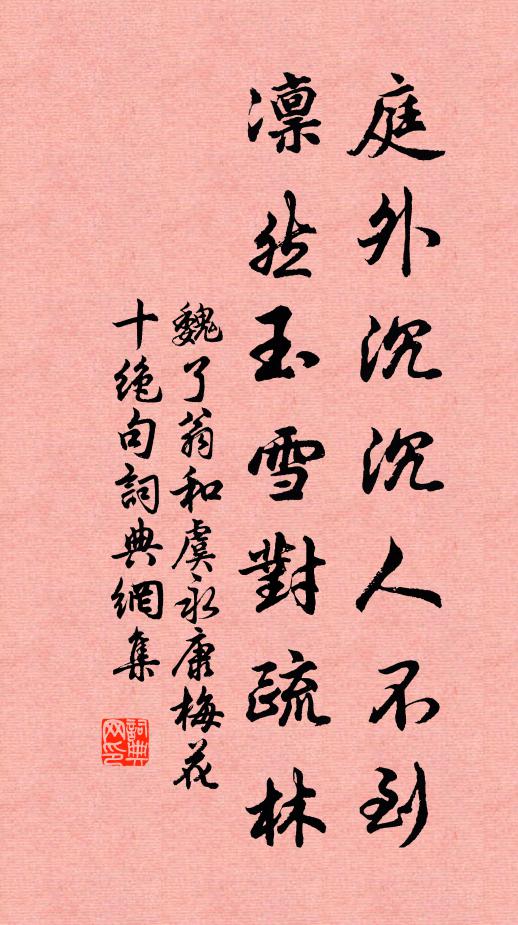 庭外沉沉人不到
凛然玉雪對疏林
魏了翁和虞永康梅花
十絶句詞典網集
詞典
网印